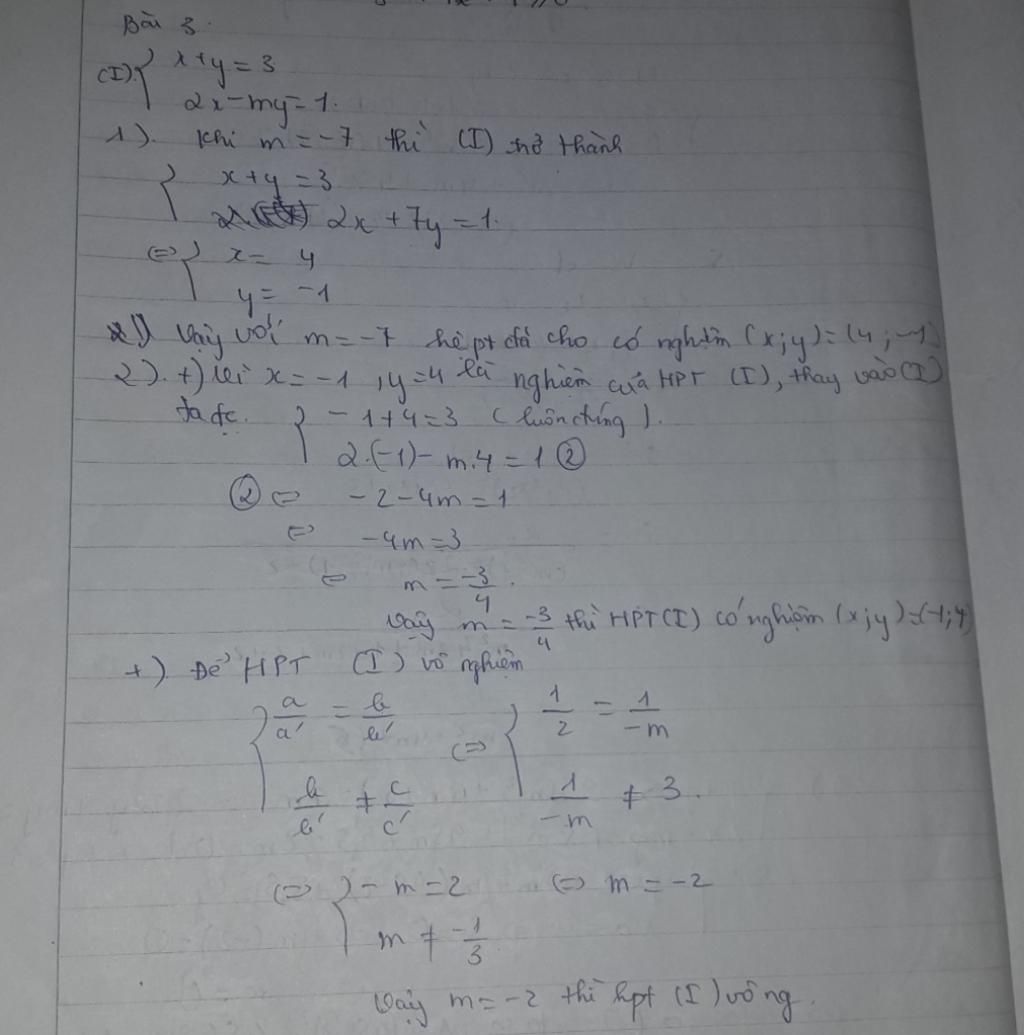 Bài 3.
(I) { x+y=3
2x-my=1.
1). Khi m=-7 thì (I) trở thành
{ x+y=3
2x+7y=1.
⇔ { x= 4
y= -1
Vậy với m=-7 hệ pt đã cho có nghiệm (x;y)=(4;-1)
2). +) Vì x=-1, y=4 là nghiệm của HPT (I), thay vào (I)
ta đc. { -1+4=3 (luôn đúng).
2.(-1)- m.4=1 ②
② ⇔ -2-4m=1
⇔ -4m=3
⇔ m=-3/4.
Vậy m=-3/4 thì HPT(I) có nghiệm (x;y)=(-1;4)
+). Để HPT (I) vô nghiệm
{ a/a' = b/b' ⇔ { 1/2 = 1/-m
b/b' ≠ c/c' 1/-m ≠ 3.
⇔ { -m=2 ⇔ m=-2
m ≠ -1/3
Vậy m=-2 thì hpt (I) vô ng.